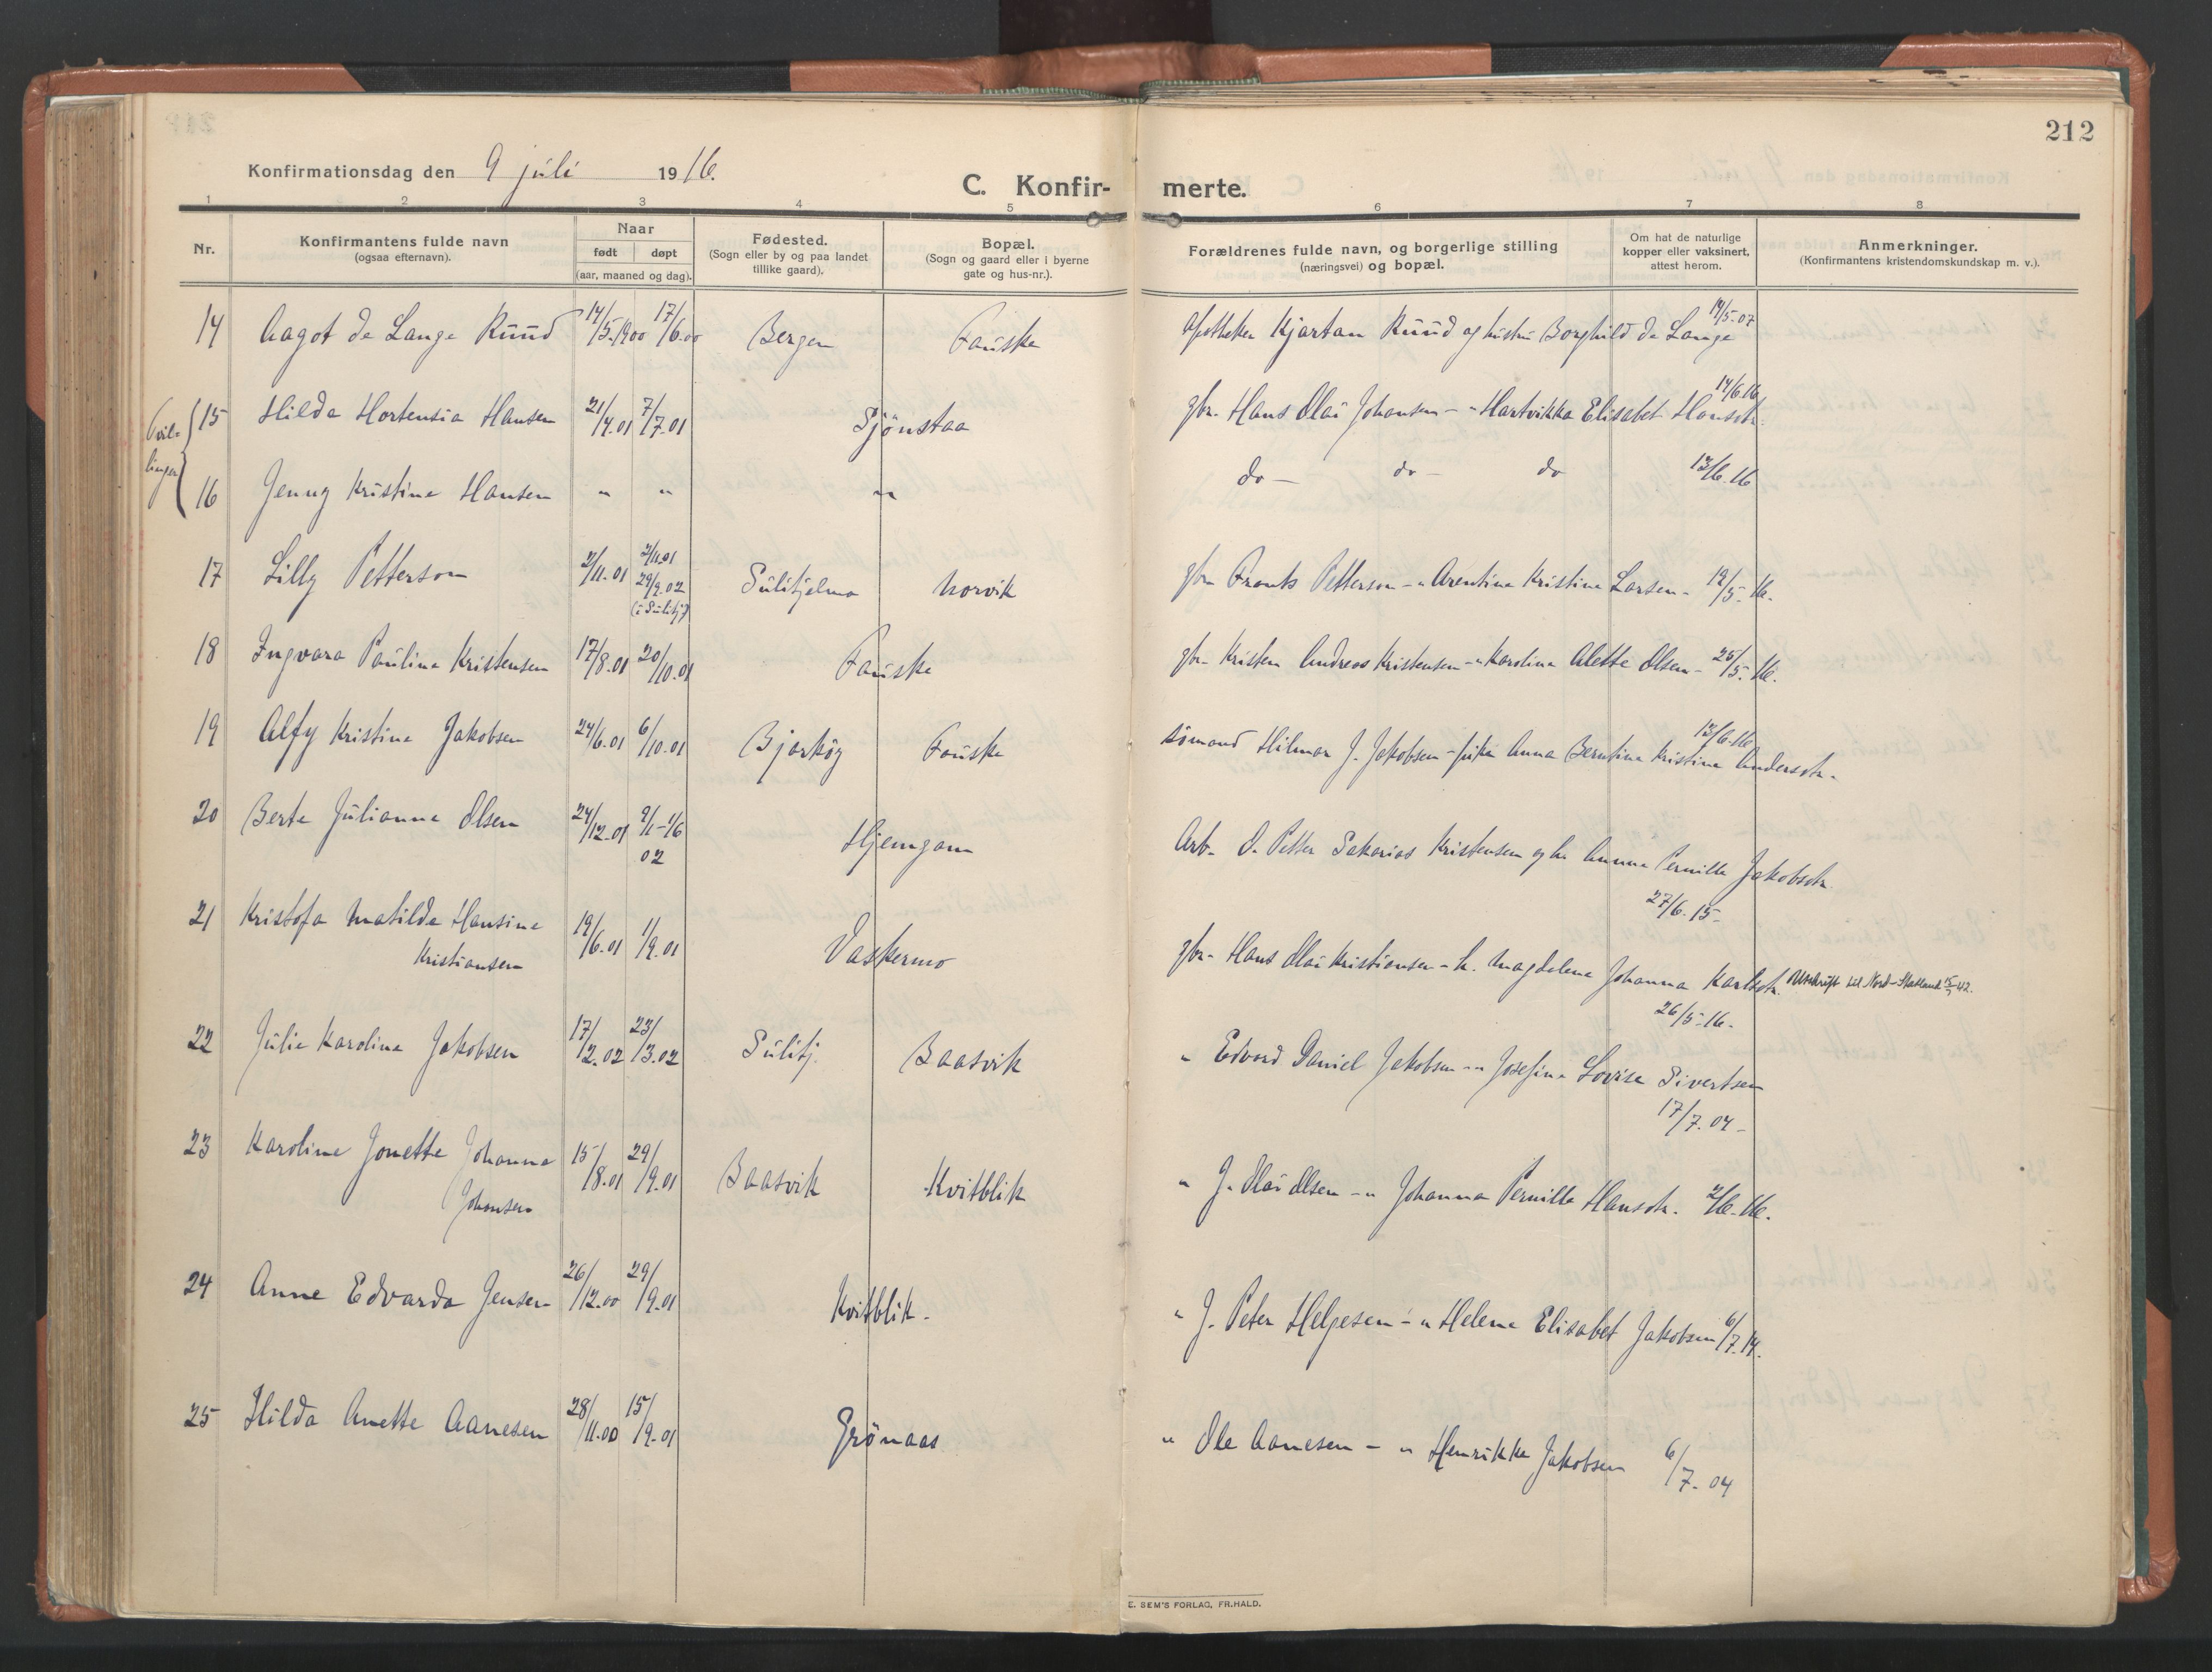 212
Konfirmationsdag den 9 juli 1916.
C. Konfir- merte.
1 2 3 4 5 6 7 8
Nr.
Konfirmantens fulde navn
(ogsaa efternavn).
Naar
født døpt
(aar, maaned og dag).
Fødested.
(Sogn eller by og paa landet
tillike gaard).
Bopæl.
(Sogn og gaard eller i byerne
gate og hus-nr.).
Forældrenes fulde navn, og borgerlige stilling
(næringsvei) og bopæl.
Om hat de naturlige
kopper eller vaksinert,
attest herom.
Anmerkninger.
(Konfirmantens kristendomskundskap m. v.).
14 Aagot de Lange Ruud 14/5.1900 17/6.00 Bergen Fauske Apotheker Kjartan Ruud og hustru Borghild de Lange 14/5-07
Tvil-
linger
15 Hilda Hortensia Hansen 21/4.01 7/7.01 Sjönstaa gbr. Hans Olai Johansen - " Hartvikka Elisabet Hansdtr. 14/6.16
16 Jenny Kristine Hansen " " " do - do - do 13/6.16
17 Lilly Petterson 2/11.01 2/11.01
29/9.02
(i Sulitj.) Sulitjelma Norvik gbr Frants Petterson - " Arentine Kristine Larsen - 19/5-16.
18 Ingvara Pauline Kristensen 17/8.01 20/10.01 Fauske gbr- Kristen Andreas Kristensen - " Karoline Alette Olsen - 25/5-16.
19 Alfy Kristine Jakobsen 24/6.01 6/10.01 Bjarköy Fauske sömand Hilmar J. Jakobsen - Anna Berntine Kristine Andersdtr. 13/6-16
20 Berte Julianne Olsen 24/12.01 9/1-16
02 Hjemgam Arb. O. Petter Sakarias Kristensen og h. Anna Pernille Jakobsdtr.
27/6.15-
21 Kristofa Matilde Hansine
Kristiansen 19/6.01 1/9.01 Vaskermo gbr- Hans Olai Kristiansen - h. Magdalena Johanna Karlsdtr. Utskrift til Nord-Statland 15/7-42.
26/5-16.
22 Julie Karoline Jakobsen 17/2.02 23/3.02 Sulitj. Baasvik " Edvard Daniel Jakobsen - " Josefine Lovise Sivertsen
17/7.04-
23 Karoline Jonette Johanne
Johansen 15/8.01 29/9.01 Baasvik Kvitblik " J. Olai Olsen - " Johanna Pernille Hansdtr. 2/6-16.
24 Anne Edvarda Jensen 26/12.00 29/9.01 Kvitblik. " J. Peter Helgesen - " Helene Elisabet Jakobsen 6/7.14.
25 Hilda Anette Aanesen 28/11.00 15/9.01 Grönaas " Ole Aanesen - " Henrikke Jakobsen 6/7.04
E. SEM'S FORLAG, FR.HALD.